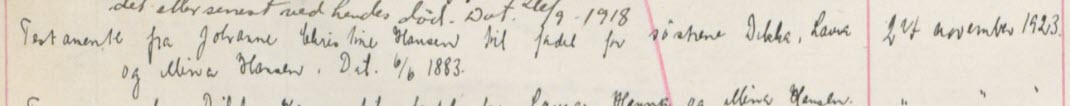 det eller senest ved hendes død. Dat. 26/9 - 1918
Testamente fra Johanne Christine Hansen til fadel for søstrene Dikka, Laura 24 november 1923.
og Mina Hansen. Dat. 6/6 1883.
Hansen og Mina Hansen. " " "